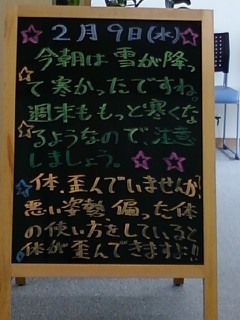 2月9日(水)
今朝は雪が降っ
て寒かったですね。
週末ももっと寒くな
るようなので注意
しましょう。
体、歪んでいませんか?
悪い姿勢、偏った体
の使い方をしていると
体が歪んできますよ!!